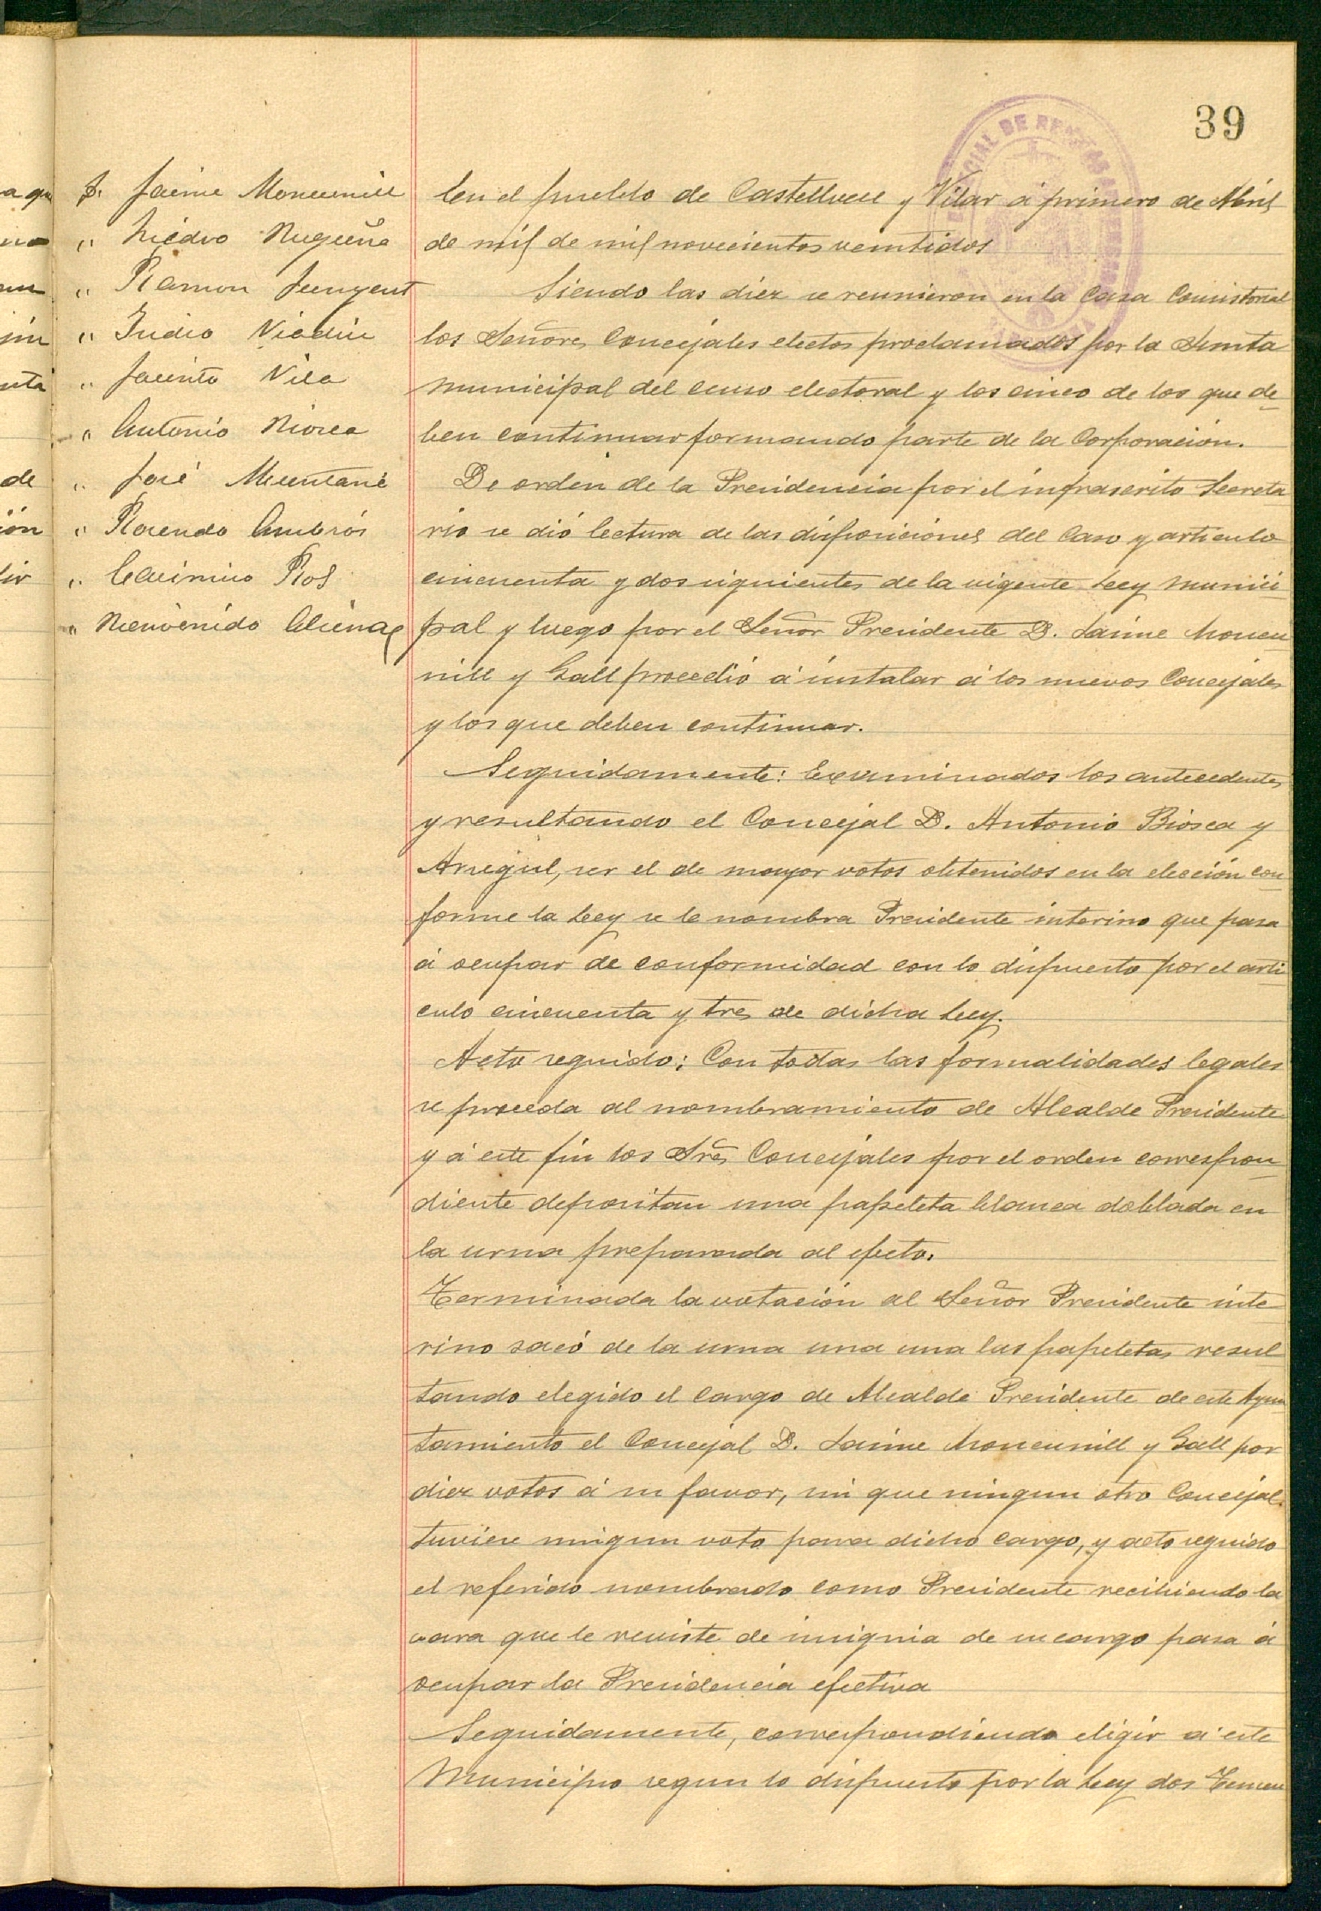 39
D. Jaime Moncunill
" Isidro Riguera
" Ramon Junyent
" Isidro Viadiu
" Jacinto Vila
" Antonio Biosca
" José Muntané
" Rosendo Ambrós
" Casimiro Rof
" Bienvenido Aliena
En el pueblo de Castellvell y Vilar á primero de Abril
de mil de mil novecientos veintidos
Siendo las diez se reunieron en la Casa Consistorial
los Señores Concejales electos proclamados por la Junta
municipal del censo electoral y los cinco de los que de-
ben continuar formando parte de la Corporación.
De orden de la Presidencia por el infrascrito Secreta
rio se dió lectura de las disposiciónes del Caso y articulo
cincuenta y dos siguientes de la vigente Ley munici-
pal y luego por el Señor Presidente D. Jaime Moncu-
nill y Gall procedió á instalar á los nuevos Concejales
y los que deben continuar.
Seguidamente: Examinados los antecedentes
y resultando el Concejal D. Antonio Biosca y
ser el de mayor votos obtenidos en la elección con-
forme la Ley se le nombra Presidente interino que pasa
á ocupar de conformidad con lo dispuesto por el arti-
culo cincuenta y tres de dicha Ley.
Acto seguido: Con todas las formalidades legales
se proceda al nombramiento de Alcalde Presidente
y á este fin los Sres Concejales por el orden correspon-
diente depositan una papeleta blanca doblada en
la urna preparada al efecto.
Terminada la votación al Señor Presidente inte-
rino sacó de la urna una una las papeletas resul
tando elegido el cargo de Alcalde Presidente de este Ayun
tamiento el Concejal D. Jaime Moncunill y Gall por
diez votos á su favor, sin que ningun otro Concejal
tuviese ningun voto para dicho cargo, y acto seguido
el referido nombrado como Presidente recibiendo la
vara que le reviste de insignia de su cargo pasa á
ocupar la Presidencia efectiva
Seguidamente, correspondiendo eligir á este
Municipio segun lo dispuesto por la Ley dos Tenien